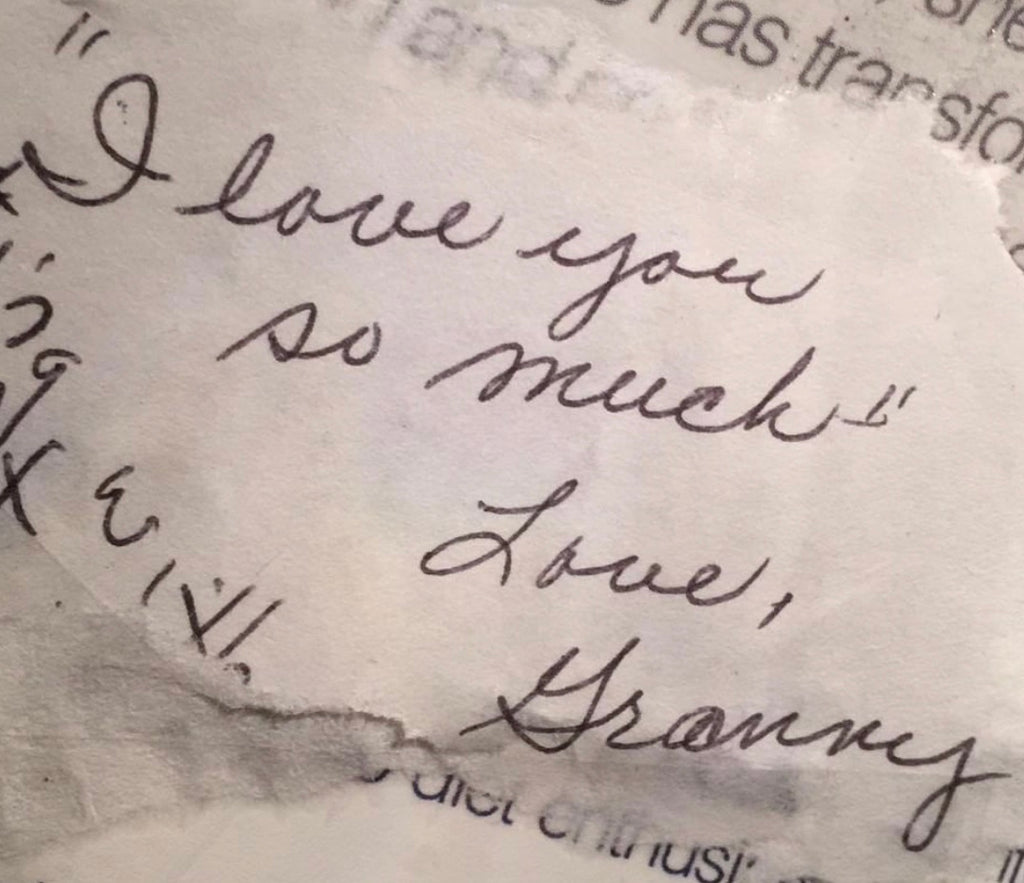 has transfo
and
"I love you
so much"
Love,
Granny
diet enthusi